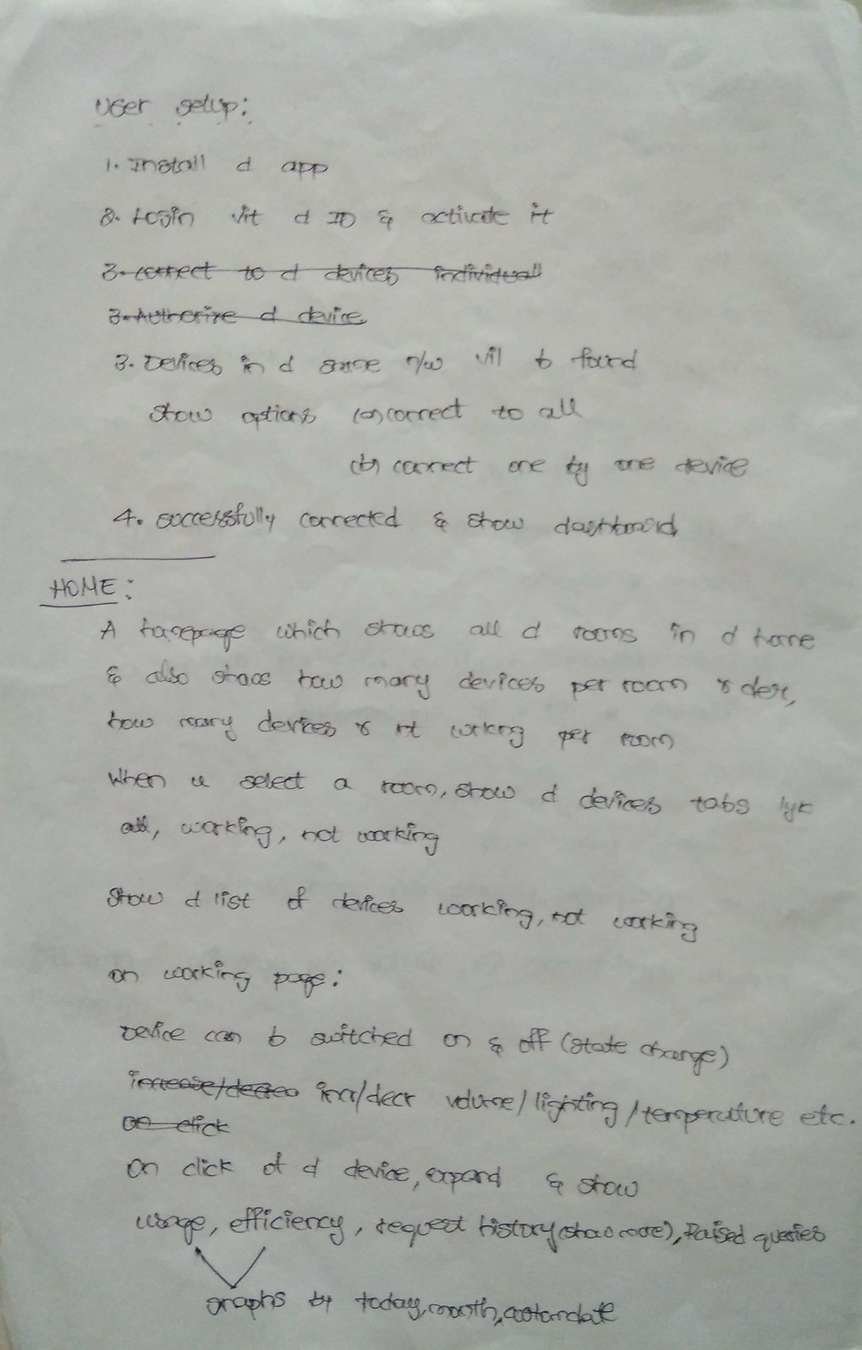 User setup:
1. Install d app
2. Login vit d ID & activate it
3. connect to d devices individual
3. Authorize d device
3. Devices in d same n/w vil b found
show options (a) connect to all
(b) connect one by one device
4. successfully connected & show dashboard
HOME:
A homepage which shows all d rooms in d home
& also shows how many devices per room r der,
how many devices r nt working per room
When u select a room, show d devices tabs lyk
all, working, not working
Show d list of devices working, not working
On working page:
Device can b switched on & off (state change)
increase/decrea incr/decr volume/lighting/temperature etc.
on click
On click of d device, expand & show
usage, efficiency, request history (show more), Raised queries
graphs by today, month, customdate